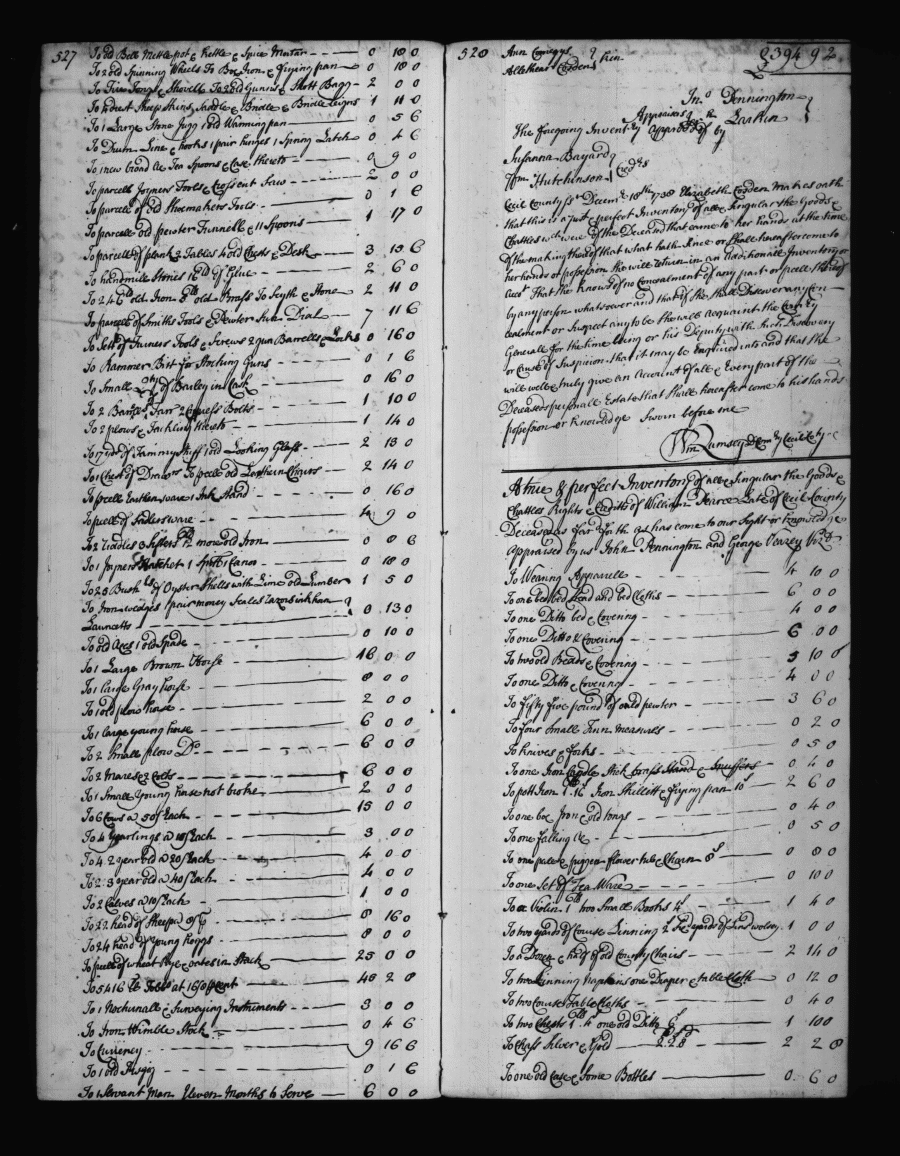 527
To old Bell Mettle pot & Kettle & Spice Mortar 0 18 0
To 2 old Spinning Wheels To Box Iron & frying pan 0 18 0
To Fire Tongs & Shovell To 2 old Gunns & Shott Bagg 2 0 0
To Sheep Skins Saddle & Bridle & Bridle Reigns 1 11 0
To 1 Large Stone Jugg 1 old Warming pan 0 5 6
To Drum Line & hooks 1 pair hinges 1 Spring Latch 0 4 6
To 1 new broad Ax Tea Spoons & Case thereto 0 9 0
To parcell Joyners Tools & Cross cut Saw 2 0 0
To parcell of old Shoemakers Tools 0 1 6
To parcell old pewter Funnell & 11 Spoons 1 17 0
To parcell of plank 2 Tables 4 old Chests & Desk 3 15 6
To handmill Stones 16 ld of Glue 2 6 0
To 246 lb old Iron 8 lb old Brass To Scyth & Stone 2 11 0
To parcell of Smiths Tools & Pewter Sun Dial 7 11 6
To Sett of Turners Tools & Screws 2 gun Barrells & Locks 0 16 0
To Rammer Bist for Stocking Guns 0 1 6
To Small Qty of Barley in Cask 0 16 0
To 2 Barrls Tarr 2 Cypress Bolts 1 10 0
To 2 plows & Tackling thereto 1 14 0
To 17 yds of Tammy Stuff 1 old Looking Glass 2 13 0
To 1 Chest of Drawrs To pcell old Leathern Chairs 2 14 0
To pcell Earthen ware 1 Ink Stand 0 16 0
To pcell of Sadlers ware 4 9 0
To 2 Riddles 3 Sifters lb more old Iron 0 8 6
To 1 Joyners Hatchet 1 Canoe 0 18 0
To 20 Bushls of Oyster Shells with Lime old Lumber 1 5 0
To Iron wedges 1 pair money Scales Razors inkhorn
Launcetts 0 13 0
To old Axes 1 old Spade 0 10 0
To 1 Large Brown Horse 16 0 0
To 1 large Gray horse 8 0 0
To 1 old plow horse 2 0 0
To 1 large young horse 6 0 0
To 2 Small plow Do 6 0 0
To 2 Mares & 2 Colts 6 0 0
To 1 Small Young horse not broke 2 0 0
To 6 Cows @ 50s Each 15 0 0
To 4 Yearlings @ Each 3 0 0
To 4 2 year old @ 20s Each 4 0 0
To 2 3 year old @ 40s Each 4 0 0
To 2 Calves @ 10s Each 1 0 0
To 22 head of Sheep @ 8 16 0
To 24 head of Young hoggs 8 0 0
To pcell of wheat Rye & oates in Stack 25 0 0
To 5416 lb Tobbo at 16/8 pCent 45 2 8
To 1 Nocturnall & Surveying Instruments 3 0 0
To Iron Wimble Stock 0 4 6
To Currency 9 16 6
To 1 old 0 1 6
To 1 Servant Man Eleven Months to Serve 6 0 0
528
£394 9 2
Ann
Allethear Codden } Kin
Jno Pennington
Appraisrs Larkin
The foregoing Inventry appro'd of by
Susanna Bayard
Wm Hutchinson } Credrs
Cecil County sst Decemr 18th 1738 Elizabeth Codden makes oath
that this is a just & perfect Inventory of all & Singular the Goods &
Chattles wch were of the Deced and that came to her hands at the time
of the making thereof that what hath Since or Shall hereafter come to
her hands or possession She will return in an Additionall Inventory or
Acct That She knows of no Concealment of any part or pcell thereof
by any person whatsoever and that if She Shall Discover any Con-
cealment or Suspect any to be She will Acquaint the Comry
Generall for the time being or his Deputy with Such Discovery
or Cause of Suspicion that it may be Enquired into and that She
will well & truly give an Account of all & Every part of the
Deceaseds personall Estate that Shall hereafter come to his hands
possession or knowledge Sworn before me
Wm Rumsey D Comry Cecil County
A true & perfect Inventory of all & Singular the Goods &
Chattles Rights & Credits of William Pearce Late of Cecil County
Deceased as far forth as has come to our Sight or knowledge
Appraised by us John Pennington and George Veazey Vizt
To Wearing Apparell 4 10 0
To one bed bed Stead and bed Cloths 6 0 0
To one Ditto bed & Covering 4 0 0
To one Ditto & Covering 6 0 0
To two old Beads & Covering 5 10 0
To one Ditto & Covering 4 0 0
To fifty five pound ofould pewter 3 6 0
To four Small Tinn measures 0 2 0
To knives & forks 0 5 0
To one Iron Candle Stick brass Stand & Snuffers 0 4 0
To pott Iron Iron Skillett & frying pan 2 6 0
To one box Iron old tongs 0 4 0
To one falling Ax 0 5 0
To one pale & piggen flower tub & Churn 0 8 0
To one Set of Tea Ware 0 10 0
To a Violin two Small Books 1 4 0
To two yards of Course Linning yards of Lind wolsey 1 0 0
To a Dozen & half of old County Chairs 2 14 0
To two Linning napkins one Diaper & table Cloth 0 12 0
To two Course Table Cloths 0 4 0
To two Chests one old Ditto 1 10 0
To Cash Silver & Gold 2.2.8 2 2 8
To one old Case & Some Bottles 0 6 0